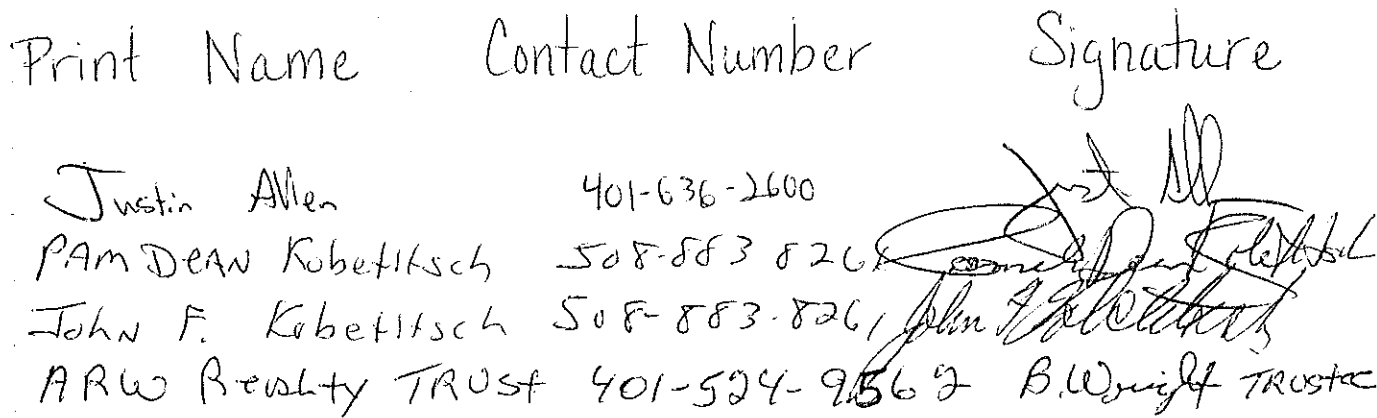 Print Name Contact Number Signature
Justin Allen 401-636-2600 Just All
PAM DEAN Kobetitsch 508-883 8261
John F. Kobetitsch 508-883-8261 John F Kobetitsch
ARW Reality TRUST 401-524-9562 B. Wright TRUSTEE